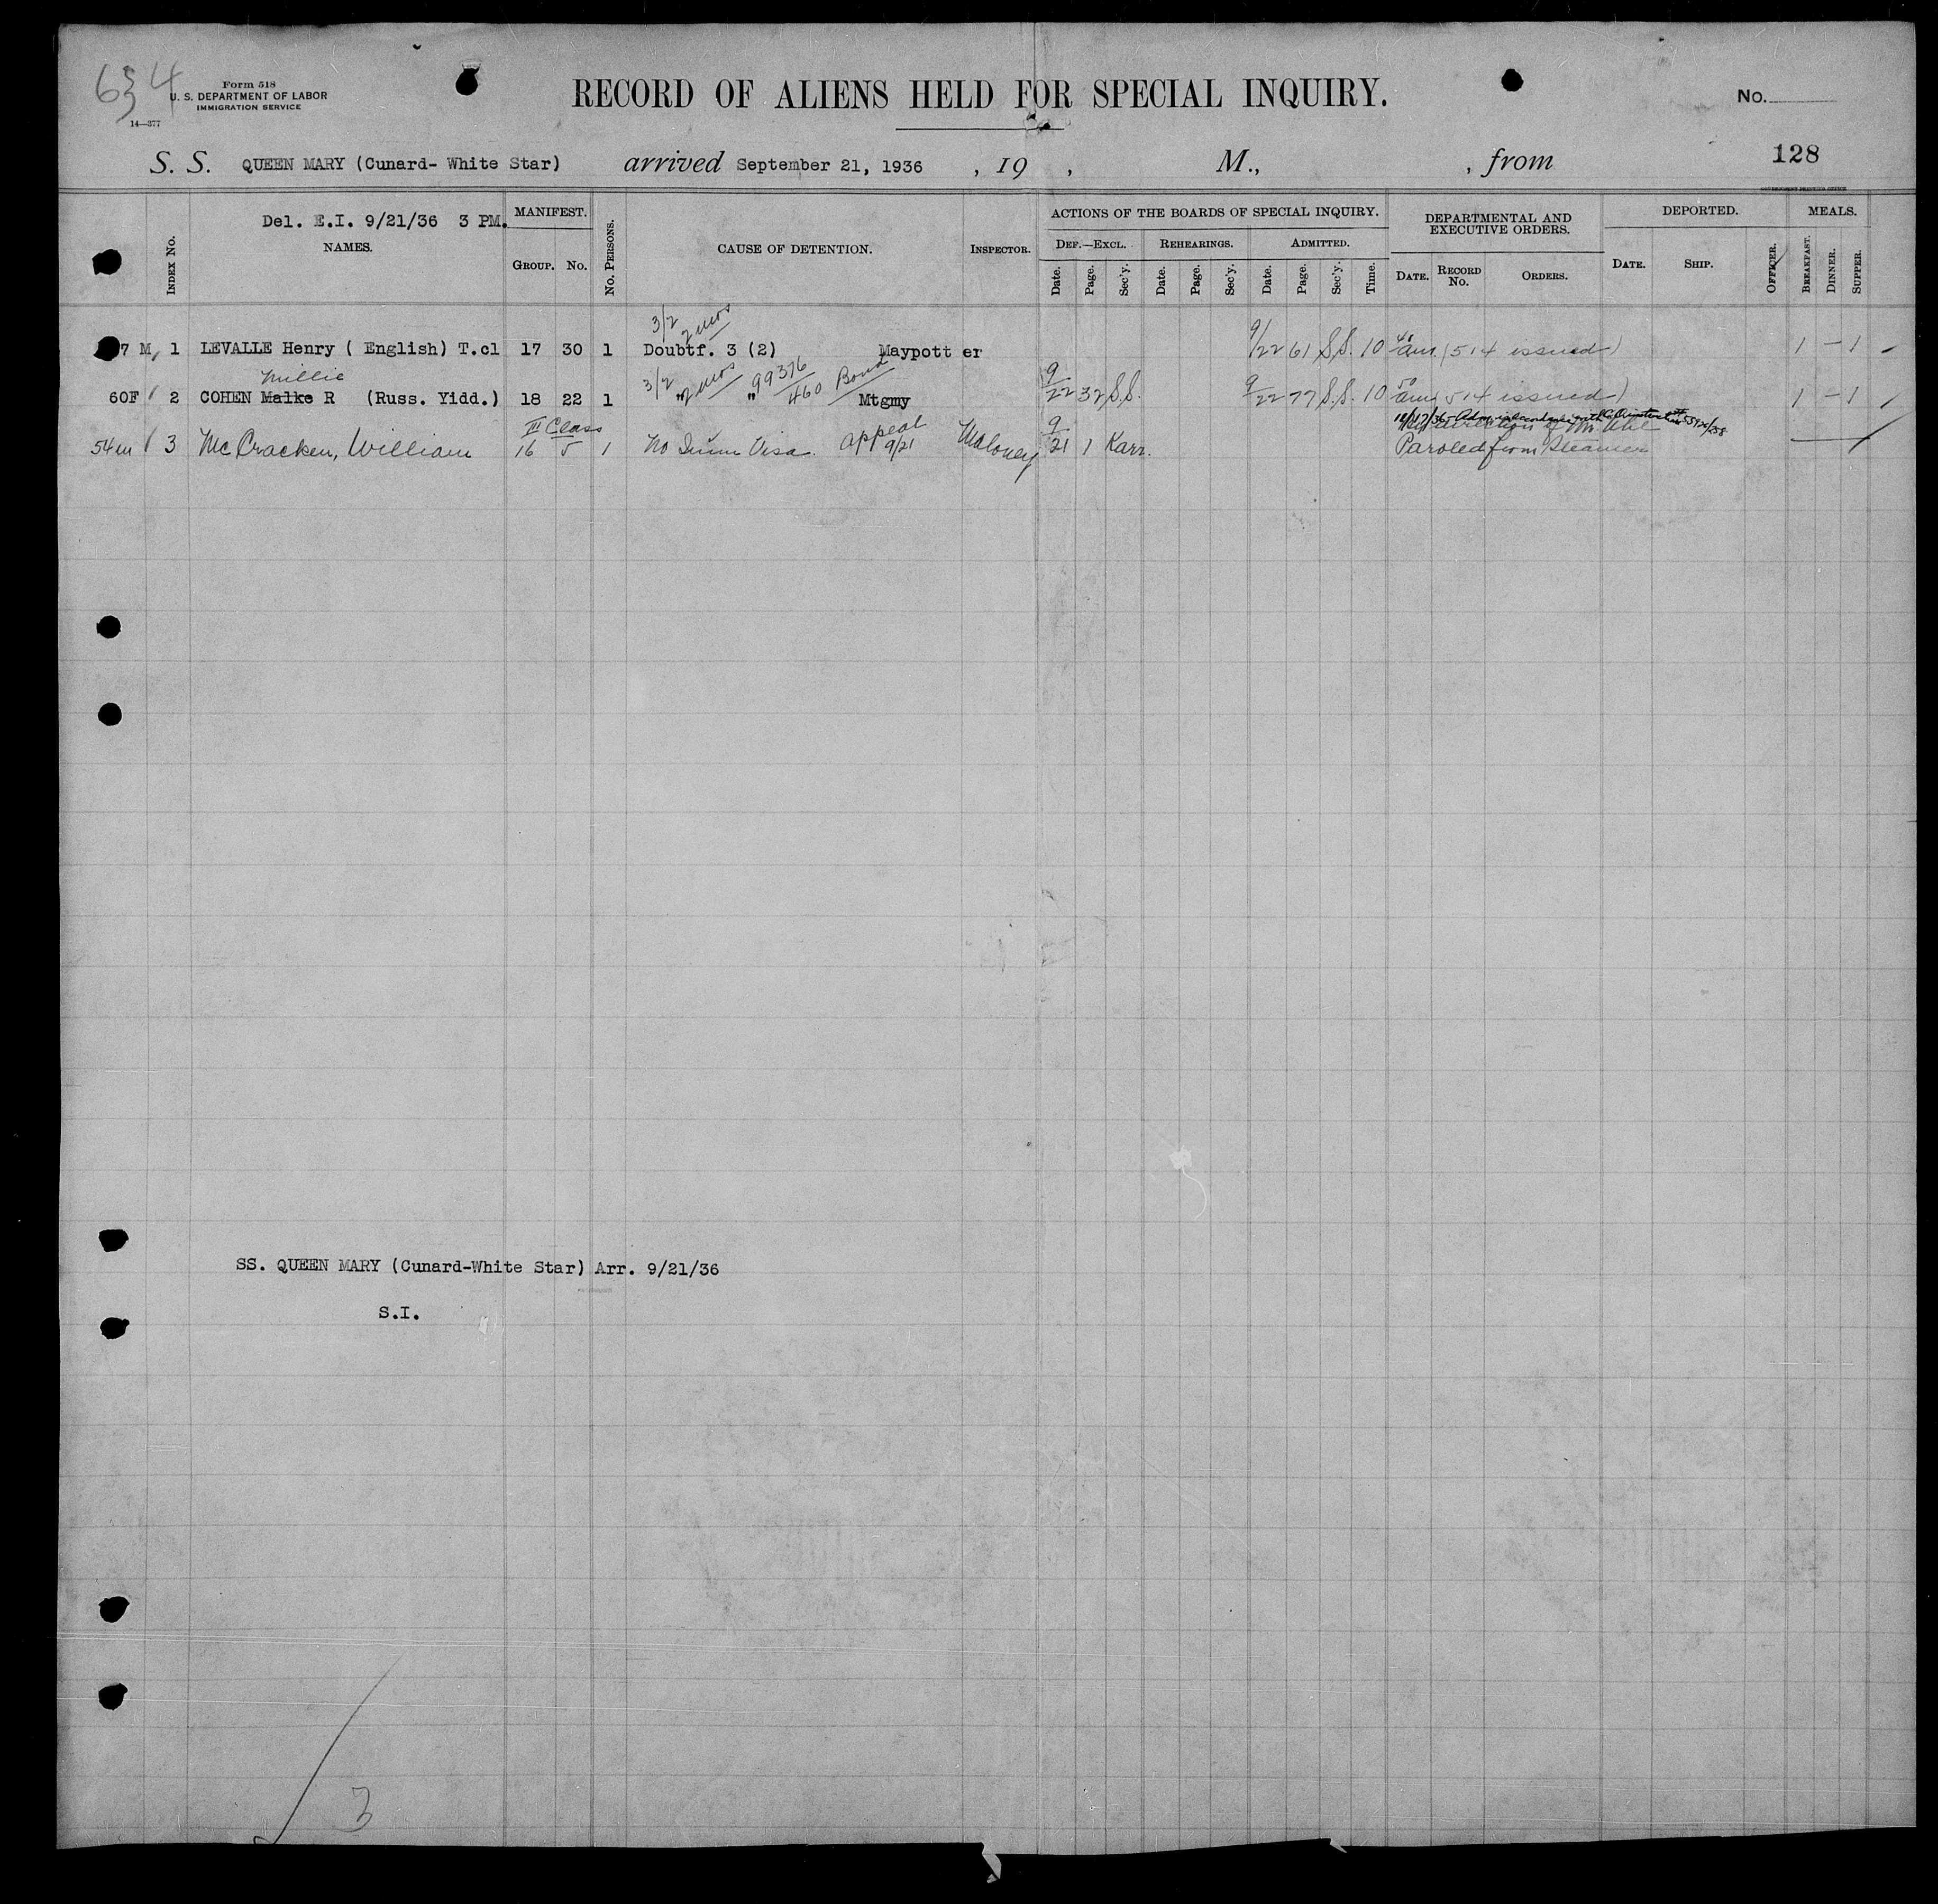 634
Form 518
U. S. DEPARTMENT OF LABOR
IMMIGRATION SERVICE
14—377
RECORD OF ALIENS HELD FOR SPECIAL INQUIRY.
No.
S. S. QUEEN MARY (Cunard- White Star) arrived September 21, 1936 , 19 , M., , from 128
Del. E.I. 9/21/36 3 PM.
INDEX No. NAMES. MANIFEST. GROUP. No. No. PERSONS. CAUSE OF DETENTION. INSPECTOR.
ACTIONS OF THE BOARDS OF SPECIAL INQUIRY.
DEF.—EXCL. REHEARINGS. ADMITTED.
Date. Page. Sec'y. Date. Page. Sec'y. Date. Page. Sec'y. Time.
DEPARTMENTAL AND EXECUTIVE ORDERS.
DATE. RECORD No. ORDERS.
DEPORTED.
DATE. SHIP. OFFICER.
MEALS.
BREAKFAST. DINNER. SUPPER.
3/2 2 mos
7 M 1 LEVALLE Henry ( English) T.cl 17 30 1 Doubtf. 3 (2) Maypott er 9/22 61 S.S. 10 40 am (514 issued) 1 – 1
Millie
3/2 2 mos 99376/460 Bond
60F 2 COHEN Malke R (Russ. Yidd.) 18 22 1 " " Mtgmy 9/22 32 S.S. 9/22 77 S.S. 10 50 am (514 issued) 1 – 1
III Class
54m 3 McCracken, William 16 5 1 No Imm Visa. appeal 9/21 Maloney 9/21 1 Karr.
Paroled from Steamer
SS. QUEEN MARY (Cunard-White Star) Arr. 9/21/36
S.I.
3